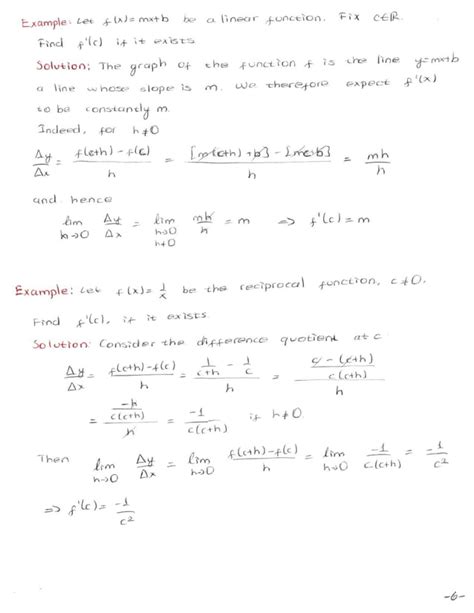 Example: Let f(x) = mx+b be a linear function. Fix c∈ℝ.
Find f'(c) if it exists.
Solution: The graph of the function f is the line y=mx+b
a line whose slope is m. We therefore expect f'(x)
to be constantly m.
Indeed, for h≠0
Δy/Δx = (f(c+h) - f(c))/h = ([m(c+h)+b] - [mc+b])/h = mh/h
and hence
lim_{h→0} Δy/Δx = lim_{h→0, h≠0} mh/h = m ⇒ f'(c) = m
Example: Let f(x) = 1/x be the reciprocal function, c≠0.
Find f'(c), if it exists.
Solution: Consider the difference quotient at c
Δy/Δx = (f(c+h)-f(c))/h = (1/(c+h) - 1/c)/h = ((c-(c+h))/(c(c+h)))/h
= (-h/(c(c+h)))/h = -1/(c(c+h)) if h≠0
Then lim_{h→0} Δy/Δx = lim_{h→0} (f(c+h)-f(c))/h = lim_{h→0} -1/(c(c+h)) = -1/c²
⇒ f'(c) = -1/c²
-6-